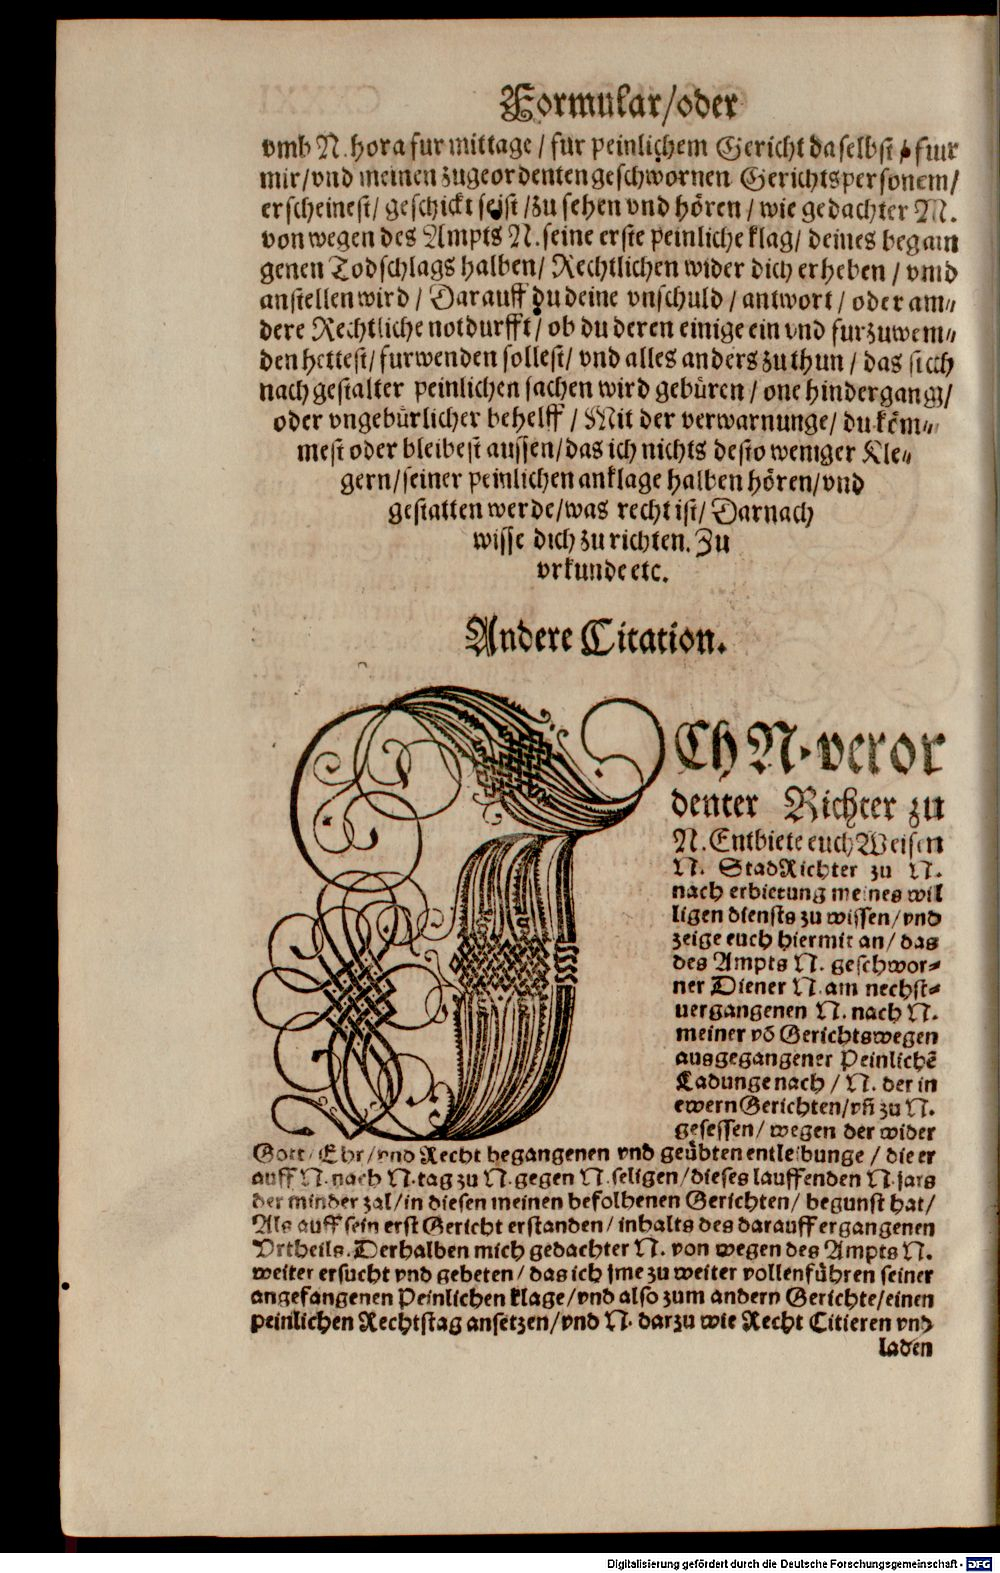 Formular/oder
vmb N. hora fur mittage / für peinlichem Gericht daselbst / fuur
mir/vnd meinen zugeordenten geschwornen Gerichtspersonem/
erscheinest/ geschickt seist /zu sehen vnd hören / wie gedachter N.
von wegen des Ampts N. seine erste peinliche klag/ deines begam
genen Todschlags halben/ Rechtlichen wider dich erheben / vmd
anstellen wird / Darauff du deine vnschuld / antwort / oder am⸗
dere Rechtliche notdurfft/ ob du deren einige ein vnd furzuwem⸗
den hettest/ furwenden sollest/ vnd alles anders zu thun / das sicch
nach gestalter peinlichen sachen wird gebüren / one hindergang/
oder vngebürlicher behelff / Mit der verwarnunge/ du köm⸗
mest oder bleibest aussen/das ich nichts desto weniger Kle⸗
gern/seiner peinlichen anklage halben hören/vnd
gestatten werde/was recht ist/ Darnach
wisse dich zu richten. Zu
vrkunde etc.
Andere Citation.
JCh N. veror
denter Richter zu
N. Entbiete euch Weisen
N. StadRichter zu N.
nach erbietung meines wil
ligen diensts zu wissen/vnd
zeige euch hiermit an/ das
des Ampts N. geschwor⸗
ner Diener N. am nechst⸗
uergangenen N. nach N.
meiner võ Gerichtswegen
ausgegangener Peinlichẽ
Ladunge nach / N. der in
ewern Gerichten/vñ zu N.
gesessen/ wegen der wider
Gott/ Ehr/vnd Recht begangenen vnd geübten entleibunge / die er
auff N. nach N. tag zu N. gegen N. seligen/dieses lauffenden N. jars
der minder zal/in diesen meinen befolhenen Gerichten/ begunst hat/
Als auff sein erst Gericht erstanden/ inhalts des darauff ergangenen
Vrtheils. Derhalben mich gedachter N. von wegen des Ampts N.
weiter ersucht vnd gebeten/ das ich jme zu weiter vollenführen seiner
angefangenen Peinlichen klage/vnd also zum andern Gerichte/einen
peinlichen Rechtstag ansetzen/vnd N. darzu wie Recht Citieren vnd
laden
Digitalisierung gefördert durch die Deutsche Forschungsgemeinschaft - DFG